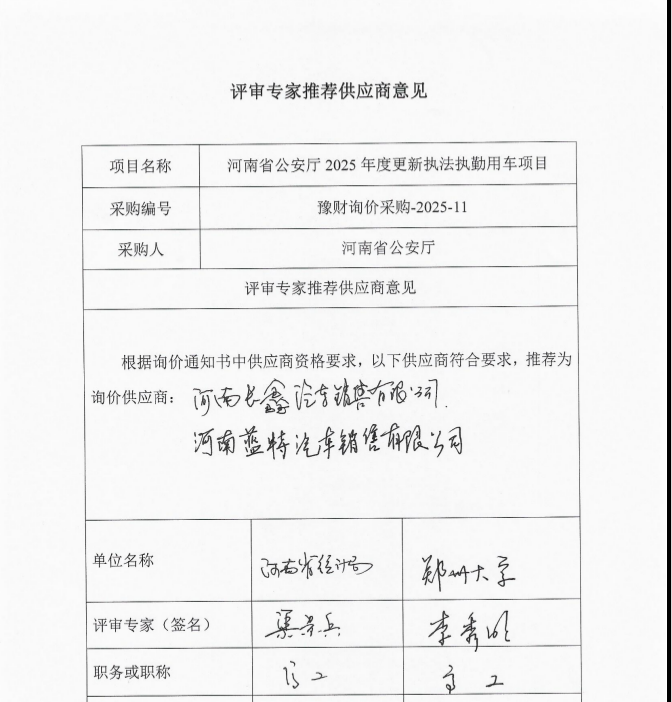 评审专家推荐供应商意见
项目名称 河南省公安厅 2025 年度更新执法执勤用车项目
采购编号 豫财询价采购-2025-11
采购人 河南省公安厅
评审专家推荐供应商意见
根据询价通知书中供应商资格要求，以下供应商符合要求，推荐为
询价供应商： 河南长鑫汽车销售有限公司.
河南蓝特汽车销售有限公司
单位名称 河南省统计局 郑州大学
评审专家（签名） 李秀明
职务或职称 高工 高工